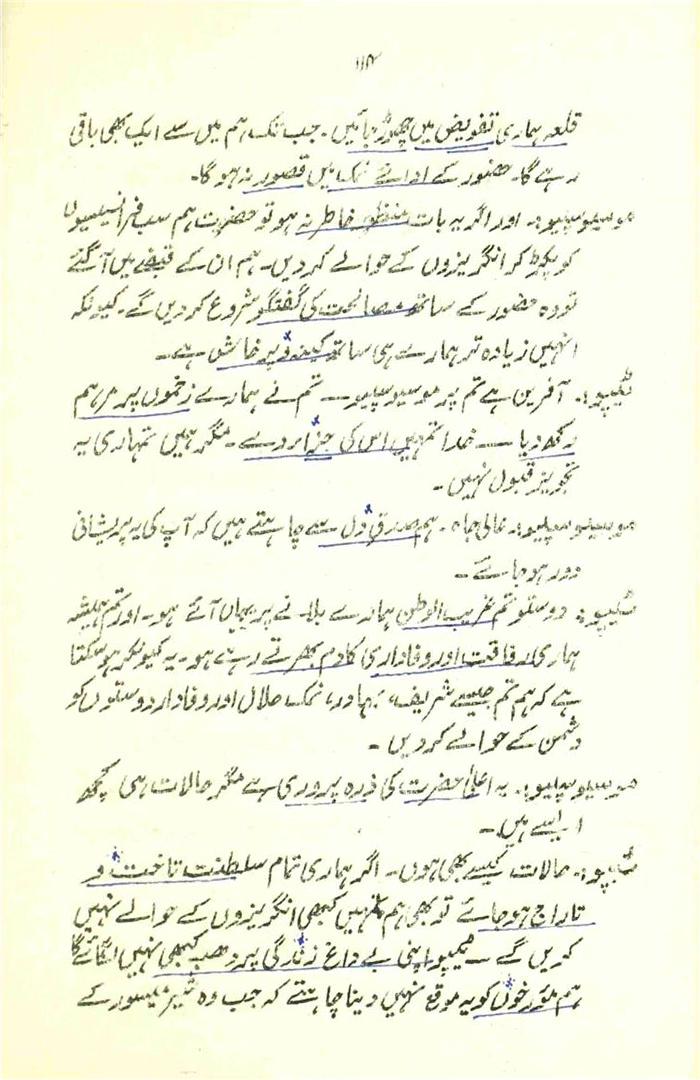 ۱۱۴
قلعہ ہماری تفویض میں چھوڑ جائیں۔ جب تک ہم میں سے ایک بھی باقی
رہے گا۔ حضور کے ادائے نمک میں قصور نہ ہو گا۔
موسیو سپلیو:۔ اور اگر یہ بات منظورِ خاطر نہ ہو تو حضرت ہم سب فرانسیسیوں
کو پکڑ کر انگریزوں کے حوالے کر دیں۔ ہم ان کے قبضے میں آ گئے
تو وہ حضور کے ساتھ مصالحت کی گفتگو شروع کر دیں گے۔ کیونکہ
انہیں زیادہ تر ہمارے ہی ساتھ کینہ و پرخاش ہے۔
ٹیپو:۔ آفرین ہے تم پر موسیو سپلیو — تم نے ہمارے زخموں پر مرہم
رکھ دیا — خدا تمہیں اس کی جزا دے۔ مگر ہمیں تمہاری یہ
تجویز قبول نہیں۔
موسیو سپلیو:۔ عالی جاہ۔ ہم صدقِ دل سے چاہتے ہیں کہ آپ کی یہ پریشانی
دور ہو جائے۔
ٹیپو:۔ دوستو تم غریب الوطن ہمارے بلانے پر یہاں آئے ہو۔ اور تم ہمیشہ
ہماری رفاقت اور وفاداری کا دم بھرتے رہے ہو۔ یہ کیونکر ہو سکتا
ہے کہ ہم تم جیسے شریف، بہادر، نمک حلال اور وفادار دوستوں کو
دشمن کے حوالے کر دیں۔
موسیو سپلیو:۔ یہ اعلیٰ حضرت کی ذرہ پروری ہے مگر حالات ہی کچھ
ایسے ہیں۔
ٹیپو:۔ حالات کیسے بھی ہوں۔ اگر ہماری تمام سلطنت تاخت و
تاراج ہو جائے تو بھی ہم تمہیں کبھی انگریزوں کے حوالے نہیں
کریں گے — ٹیپو اپنی بے داغ زندگی پر دھبہ کبھی نہیں لگائے گا
ہم مؤرخوں کو یہ موقع نہیں دینا چاہتے کہ جب وہ شیر میسور کے